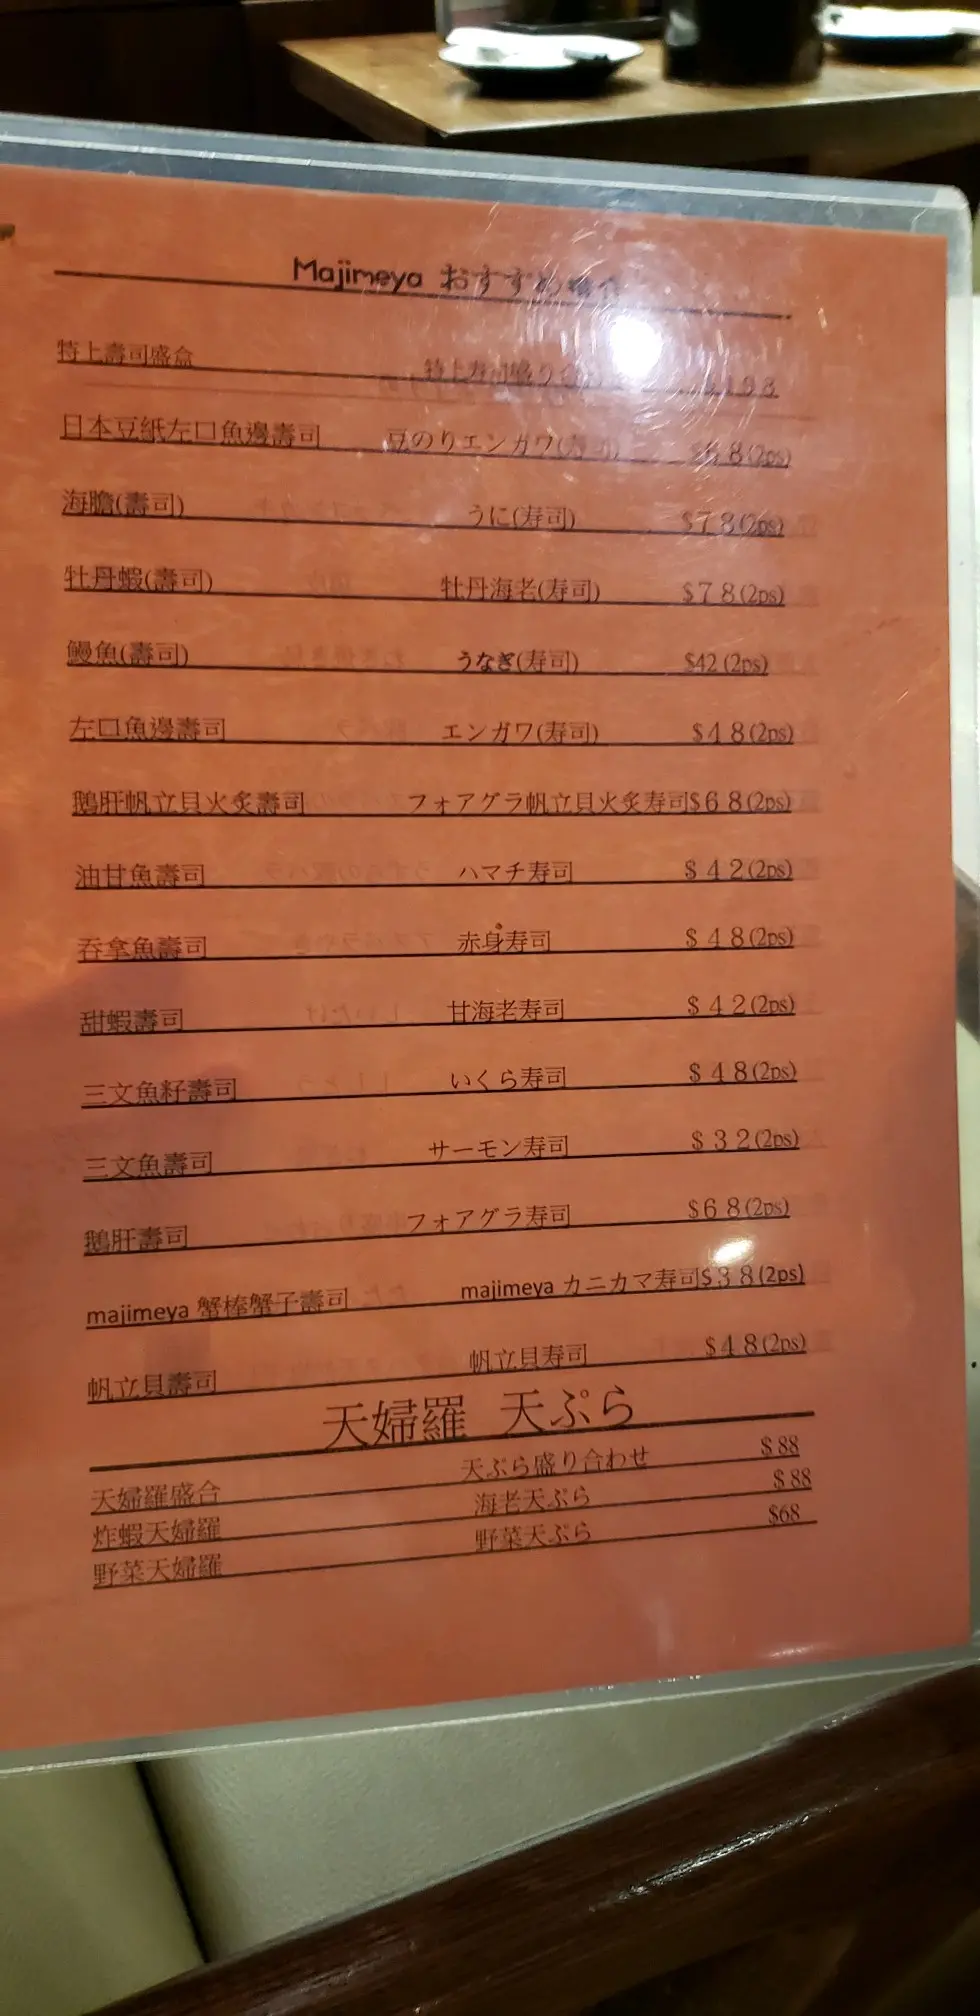 Majimeya おすすめ
特上壽司盛盒 特上寿司盛り 198
日本豆紙左口魚邊壽司 豆のりエンガワ(寿司) $68(2ps)
海膽(壽司) うに(寿司) $78(2ps)
牡丹蝦(壽司) 牡丹海老(寿司) $78(2ps)
鰻魚(壽司) うなぎ(寿司) $42(2ps)
左口魚邊壽司 エンガワ(寿司) $48(2ps)
鵝肝帆立貝火炙壽司 フォアグラ帆立貝火炙寿司$68(2ps)
油甘魚壽司 ハマチ寿司 $42(2ps)
吞拿魚壽司 赤身寿司 $48(2ps)
甜蝦壽司 甘海老寿司 $42(2ps)
三文魚籽壽司 いくら寿司 $48(2ps)
三文魚壽司 サーモン寿司 $32(2ps)
鵝肝壽司 フォアグラ寿司 $68(2ps)
majimeya 蟹棒蟹子壽司 majimeya カニカマ寿司$38(2ps)
帆立貝壽司 帆立貝寿司 $48(2ps)
天婦羅 天ぷら
天婦羅盛合 天ぷら盛り合わせ $88
炸蝦天婦羅 海老天ぷら $88
野菜天婦羅 野菜天ぷら $68